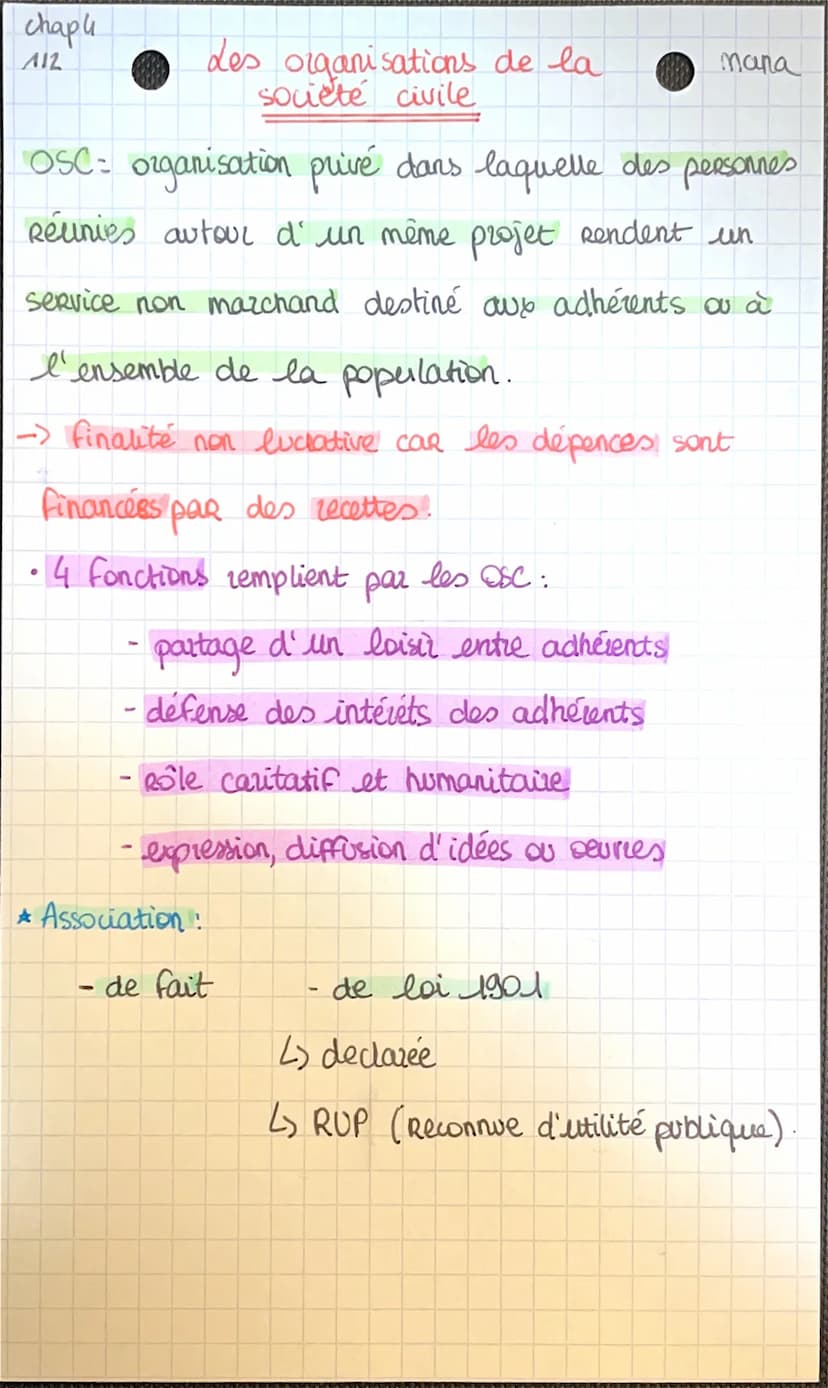 chap 4
1/2
Les organisations de la
société civile
mana
OSC = organisation privé dans laquelle des personnes
Réunies autour d'un même projet Rendent un
service non marchand destiné aux adhérents ou à
l'ensemble de la population.
-> finalité non lucrative car les dépences sont
financées par des recettes.
• 4 fonctions remplient par les OSC :
- partage d'un loisir entre adhérents
- défense des intérêts des adhérents
- Rôle caritatif et humanitaire
- expression, diffusion d'idées ou oeuvres
★ Association :
- de fait - de loi 1901
↳ declarée
↳ RUP (Reconnue d'utilité publique).